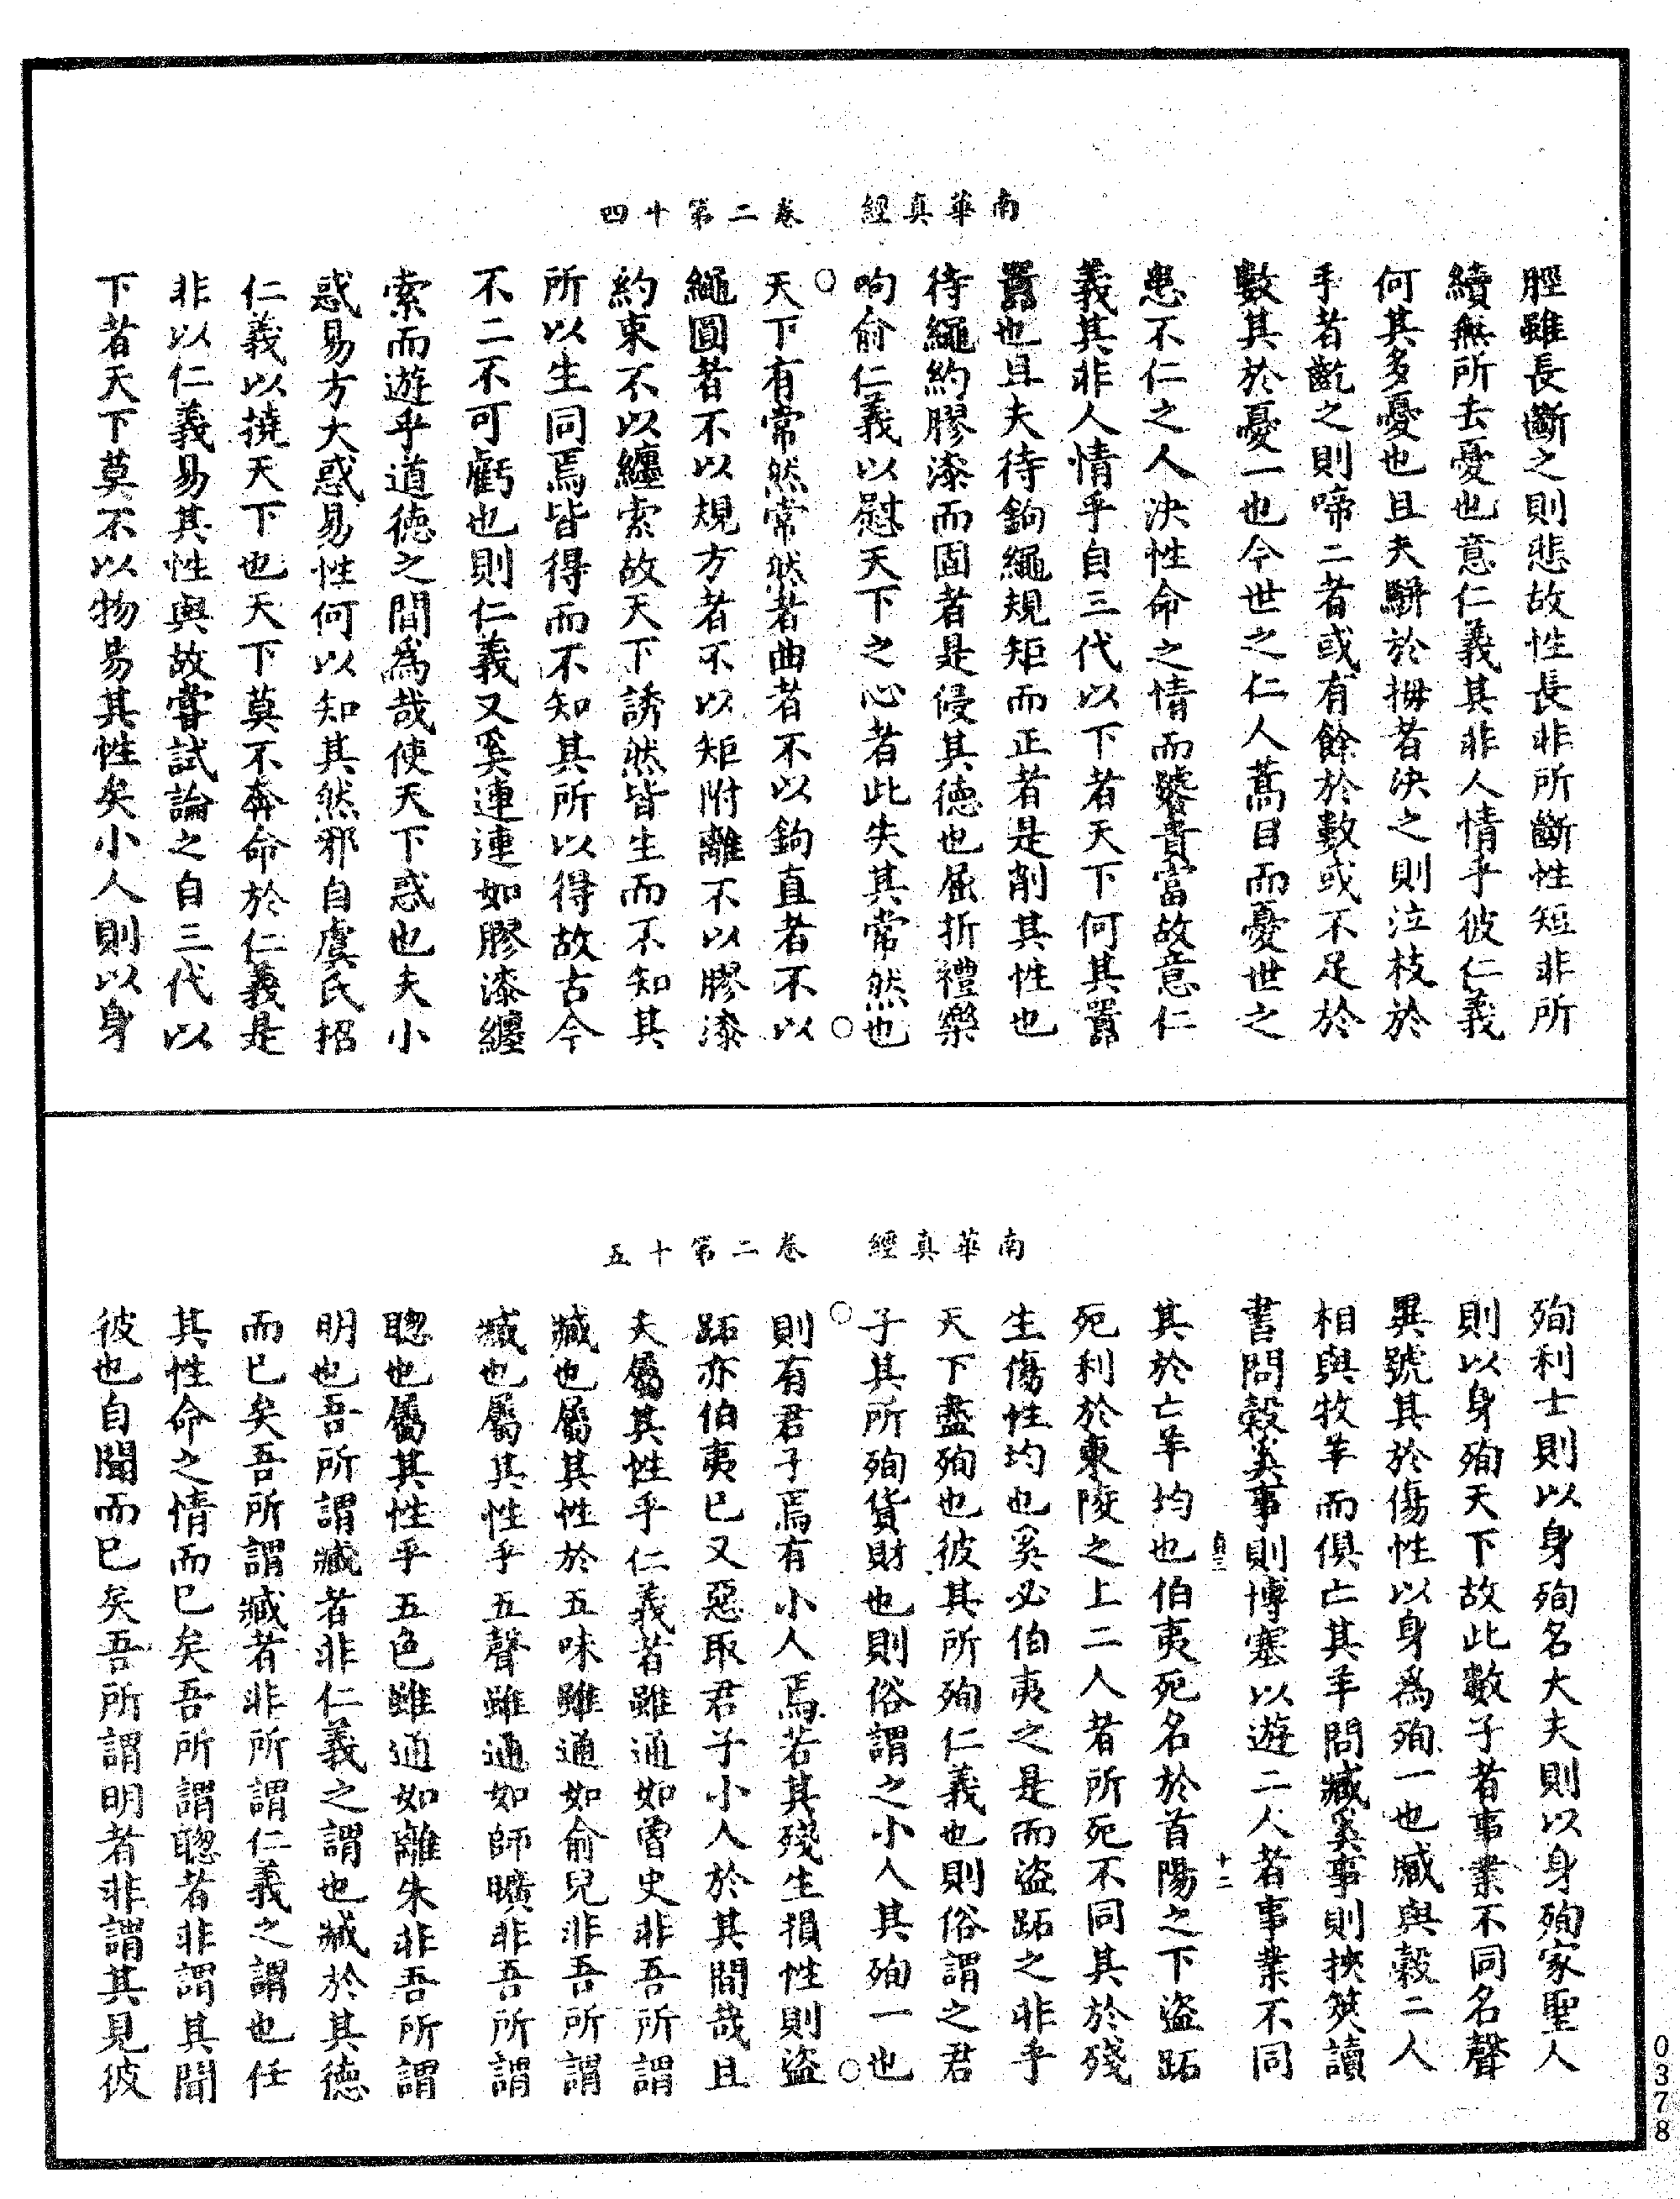 南華真經　卷二第十四
脛雖長斷之則悲故性長非所斷性短非所
續無所去憂也意仁義其非人情乎彼仁義
何其多憂也且夫駢於拇者決之則泣枝於
手者齕之則啼二者或有餘於數或不足於
數其於憂一也今世之仁人蒿目而憂世之
患不仁之人決性命之情而饕貴富故意仁
義其非人情乎自三代以下者天下何其囂
囂也且夫待鉤繩規矩而正者是削其性也
待繩約膠漆而固者是侵其德也屈折禮樂
呴俞仁義以慰天下之心者此失其常然也
天下有常然常然者曲者不以鉤直者不以
繩圓者不以規方者不以矩附離不以膠漆
約束不以纏索故天下誘然皆生而不知其
所以生同焉皆得而不知其所以得故古今
不二不可虧也則仁義又奚連連如膠漆纏
索而遊乎道德之間為哉使天下惑也夫小
惑易方大惑易性何以知其然邪自虞氏招
仁義以撓天下也天下莫不奔命於仁義是
非以仁義易其性與故嘗試論之自三代以
下者天下莫不以物易其性矣小人則以身
南華真經　卷二第十五
殉利士則以身殉名大夫則以身殉家聖人
則以身殉天下故此數子者事業不同名聲
異號其於傷性以身為殉一也臧與穀二人
相與牧羊而俱亡其羊問臧奚事則挾筴讀
書問穀奚事則博塞以遊二人者事業不同
其於亡羊均也伯夷死名於首陽之下盜跖
死利於東陵之上二人者所死不同其於殘
生傷性均也奚必伯夷之是而盜跖之非乎
天下盡殉也彼其所殉仁義也則俗謂之君
子其所殉貨財也則俗謂之小人其殉一也
則有君子焉有小人焉若其殘生損性則盜
跖亦伯夷已又惡取君子小人於其間哉且
夫屬其性乎仁義者雖通如曾史非吾所謂
臧也屬其性於五味雖通如俞兒非吾所謂
臧也屬其性乎五聲雖通如師曠非吾所謂
聰也屬其性乎五色雖通如離朱非吾所謂
明也吾所謂臧者非仁義之謂也臧於其德
而已矣吾所謂臧者非所謂仁義之謂也任
其性命之情而已矣吾所謂聰者非謂其聞
彼也自聞而已矣吾所謂明者非謂其見彼
十二
0378